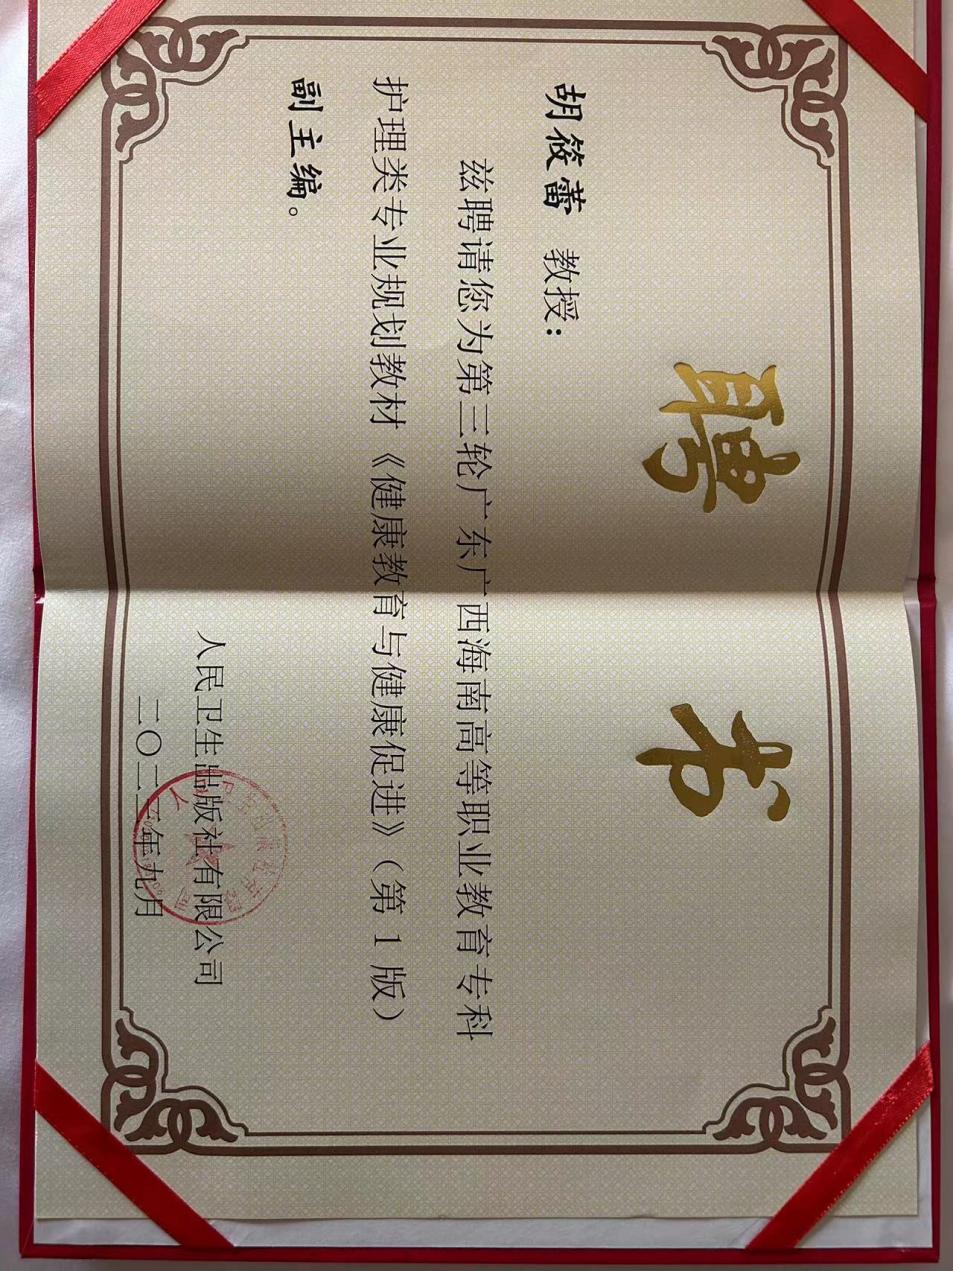 聘书
胡筱蕾 教授：
兹聘请您为第三轮广东广西海南高等职业教育专科
护理类专业规划教材《健康教育与健康促进》（第 1 版）
副主编。
人民卫生出版社有限公司
二〇二三年九月